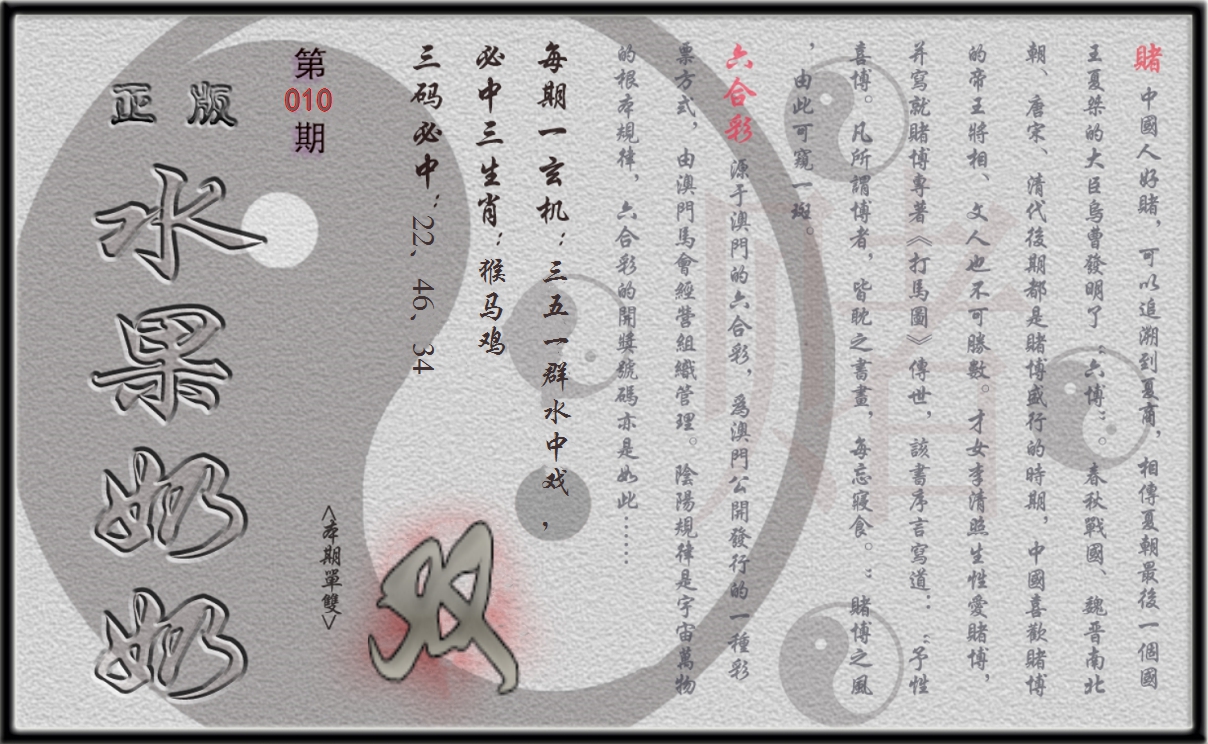 賭 中國人好賭，可以追溯到夏商，相傳夏朝最後一個國
王夏桀的大臣烏曹發明了“六博”。春秋戰國、魏晉南北
朝、唐宋、清代後期都是賭博盛行的時期，中國喜歡賭博
的帝王將相、文人也不可勝數。才女李清照生性愛賭博，
并寫就賭博專著《打馬圖》傳世，該書序言寫道：“予性
喜博。凡所謂博者，皆耽之書畫，每忘寢食。：賭博之風
，由此可窺一斑。
六合彩 源于澳門的六合彩，為澳門公開發行的一種彩
票方式，由澳門馬會經營組織管理。陰陽規律是宇宙萬物
的根本規律，六合彩的開獎號碼亦是如此……
每期一玄机：三五一群水中戏，
必中三生肖：猴马鸡
三码必中：22、46、34
双
<本期單雙>
第010期
正版
水果奶奶
赌